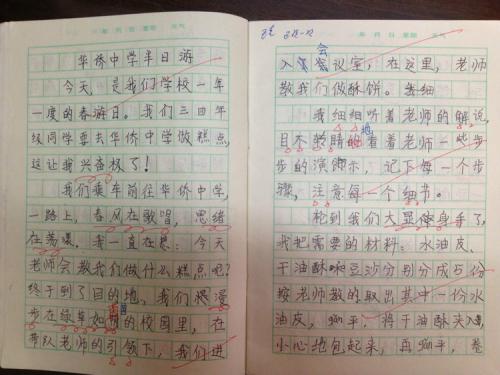 年 月 日 星期 天气
华侨中学半日游
今天，是我们学校一年
一度的春游日。我们三四年
级同学要去华侨中学做糕点，
这让我兴奋极了！
我们乘车前往华侨中学，
一路上，春风在歌唱，思绪
在荡漾。我一直在想：今天
老师会教我们做什么糕点呢？
终于到了目的地，我们漫
步在绿草如茵的校园里，在
带队老师的引领下，我们进
年 月 日 星期 天气
入会议室，在这里，老师
教我们做酥饼。
我细细听着老师的解说，
目不转睛地看着老师一步
步的演示，记下每一个步
骤，注意每一个细节。
轮到我们大显身手了，
我把需要的材料：水油皮、
干油酥和豆沙分别分成5份
按老师教的取出其中一份水
油皮，平，将干油酥夹入，
小心地包起来，再平，卷